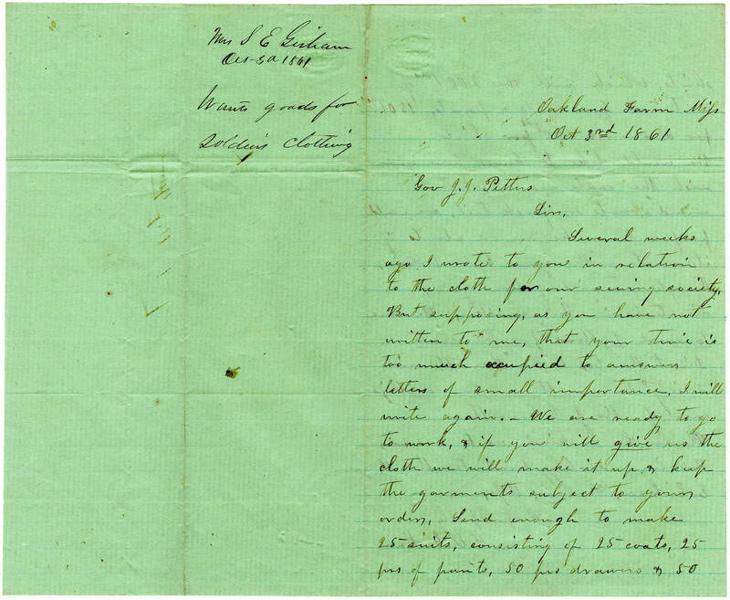 Mrs S E Gisham
Oct 3d 1861
Wants goods for
Soldiers clothing
Oakland Farm Miss
Oct 3rd 1861
Gov J. J. Pettus
Sir,
Several weeks
ago I wrote to you in relation
to the cloth for our sewing society.
But supposing, as you have not
written to me, that your time is
too much occupied to answer
letters of small importance, I will
write again. - We are ready to go
to work, & if you will give us the
cloth we will make it up & keep
the garments subject to your
orders, Send enough to make
25 suits, consisting of 25 coats, 25
prs of pants, 50 prs drawers & 50